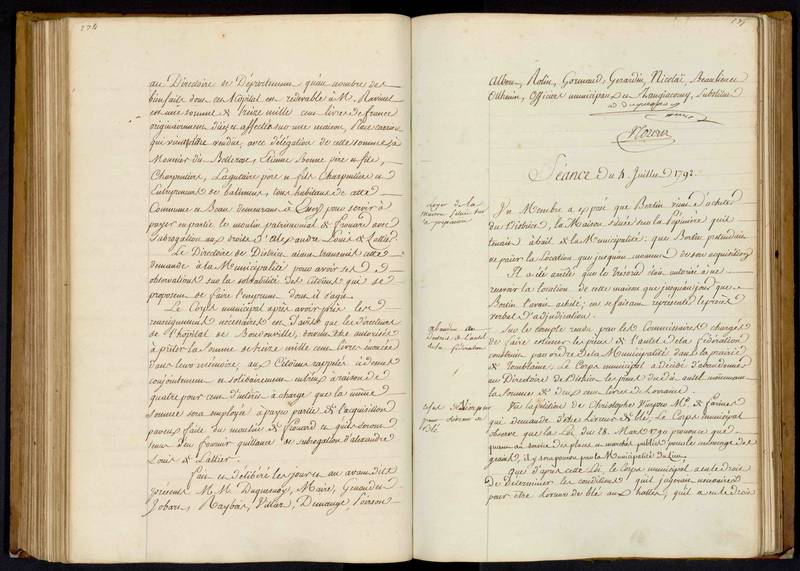 274
au Directoire de Département qu'au nombre des
bienfaits dont cet Hôpital est redevable à M. Ravinel
est une somme de treize mille cent livres de france
originairement dues et affectées sur une maison, Place
qui vendue, avec délégation de cette somme à
Meunier du Bellerose, Etienne père et fils,
Charpentiers, Lagutaire père et fils Charpentiers et
Entrepreneurs de batiments, tous habitans de cette
Commune et Jean demeurant à pour servir à
payer en partie le moulin patrimonial de frouard avec
subrogation aux droits d'Alexandre Louis de Lattier.
Le Directoire de District aiant transmit cette
demande à la Municipalité pour avoir ses
observations sur la solvabilité des Citoiens qui se
proposent de faire l'emprunt dont il s'agit.
Le Corps municipal après avoir pris les
renseignements necessaires est d'avis que les Directeurs
de l'hôpital de Boudonville, doivent être autorisés
à prêter la somme de treize mille cent livres énoncée
dans leur mémoire, au Citoiens rappelés ci dessus
conjointement et solidairement entr'eux à raison de
quatre pour cent d'intérêts à charge que la même
somme sera employée à payer partie de l'acquisition
par eux faite du moulin de frouard et qu'ils seront
tenus d'en fournir quittance de subrogation d'alexandre
Louis de Lattier.
Fait et délibéré les jour et an avant dits
présents M.M. Duquesnoy, Maire, Genaudet
Jobart, Raybois, Villar, Demange, Poirson
Albon, Rolin, Gormand, Gerardin, Nicolaï, Beaulieu et
Othenin, Officiers municipaux et Zangiacomy, Substitut
Séance du 4 Juillet 1792.
Loyer de la
maison située sur
la pepiniere
Un Membre a exposé que Bertin vient d'acheter
du District, la Maison située sur la Pépinière qu'il
tenait à bail de la Municipalité; que Bertin prétendait
ne païer la Location que jusqu'au moment de son acquisition
Il a été arrêté que le Trésorier était autorisé à ne
recevoir la location de cette maison que jusqu'au jour que
Bertin l'avait acheté; en se faisant représenter le procès
verbal d'adjudication.
abandon au
District de l'autel
de la fédération
Sur le compte rendu par les Commissaires chargés
de faire estimer les pierres de l'autel de la fédération
construit par ordre de la Municipalité dans la prairie
de Tomblaine. Le Corps municipal a décidé d'abandonner
au Directoire de District les pierres dudit autel moyennant
la somme de deux cent livres de Lorraine.
leveur de
blé
Vu la pétition de Christophe Virion Md. de farines
qui demande d'être Leveur de blé, Le Corps municipal
observe que la Loi du 28 Mars 1790 prononce que
quant au service des places et marchés publics pour le mesurage des
grains, il y sera pourvu par les Municipalités des Lieux.
Que d'après cette Loi, le Corps municipal a eu le droit
de déterminer les conditions qu'il jugeait nécessaires
pour être Leveur de blé aux halles, qu'il a eu le droit